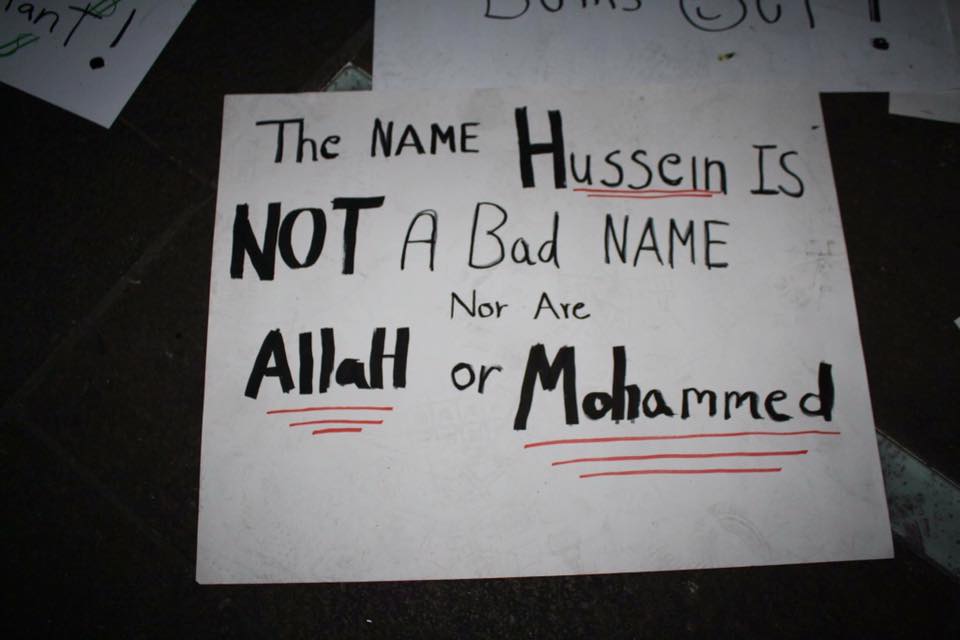 The NAME Hussein IS
NOT A Bad NAME
Nor Are
AllaH or Mohammed